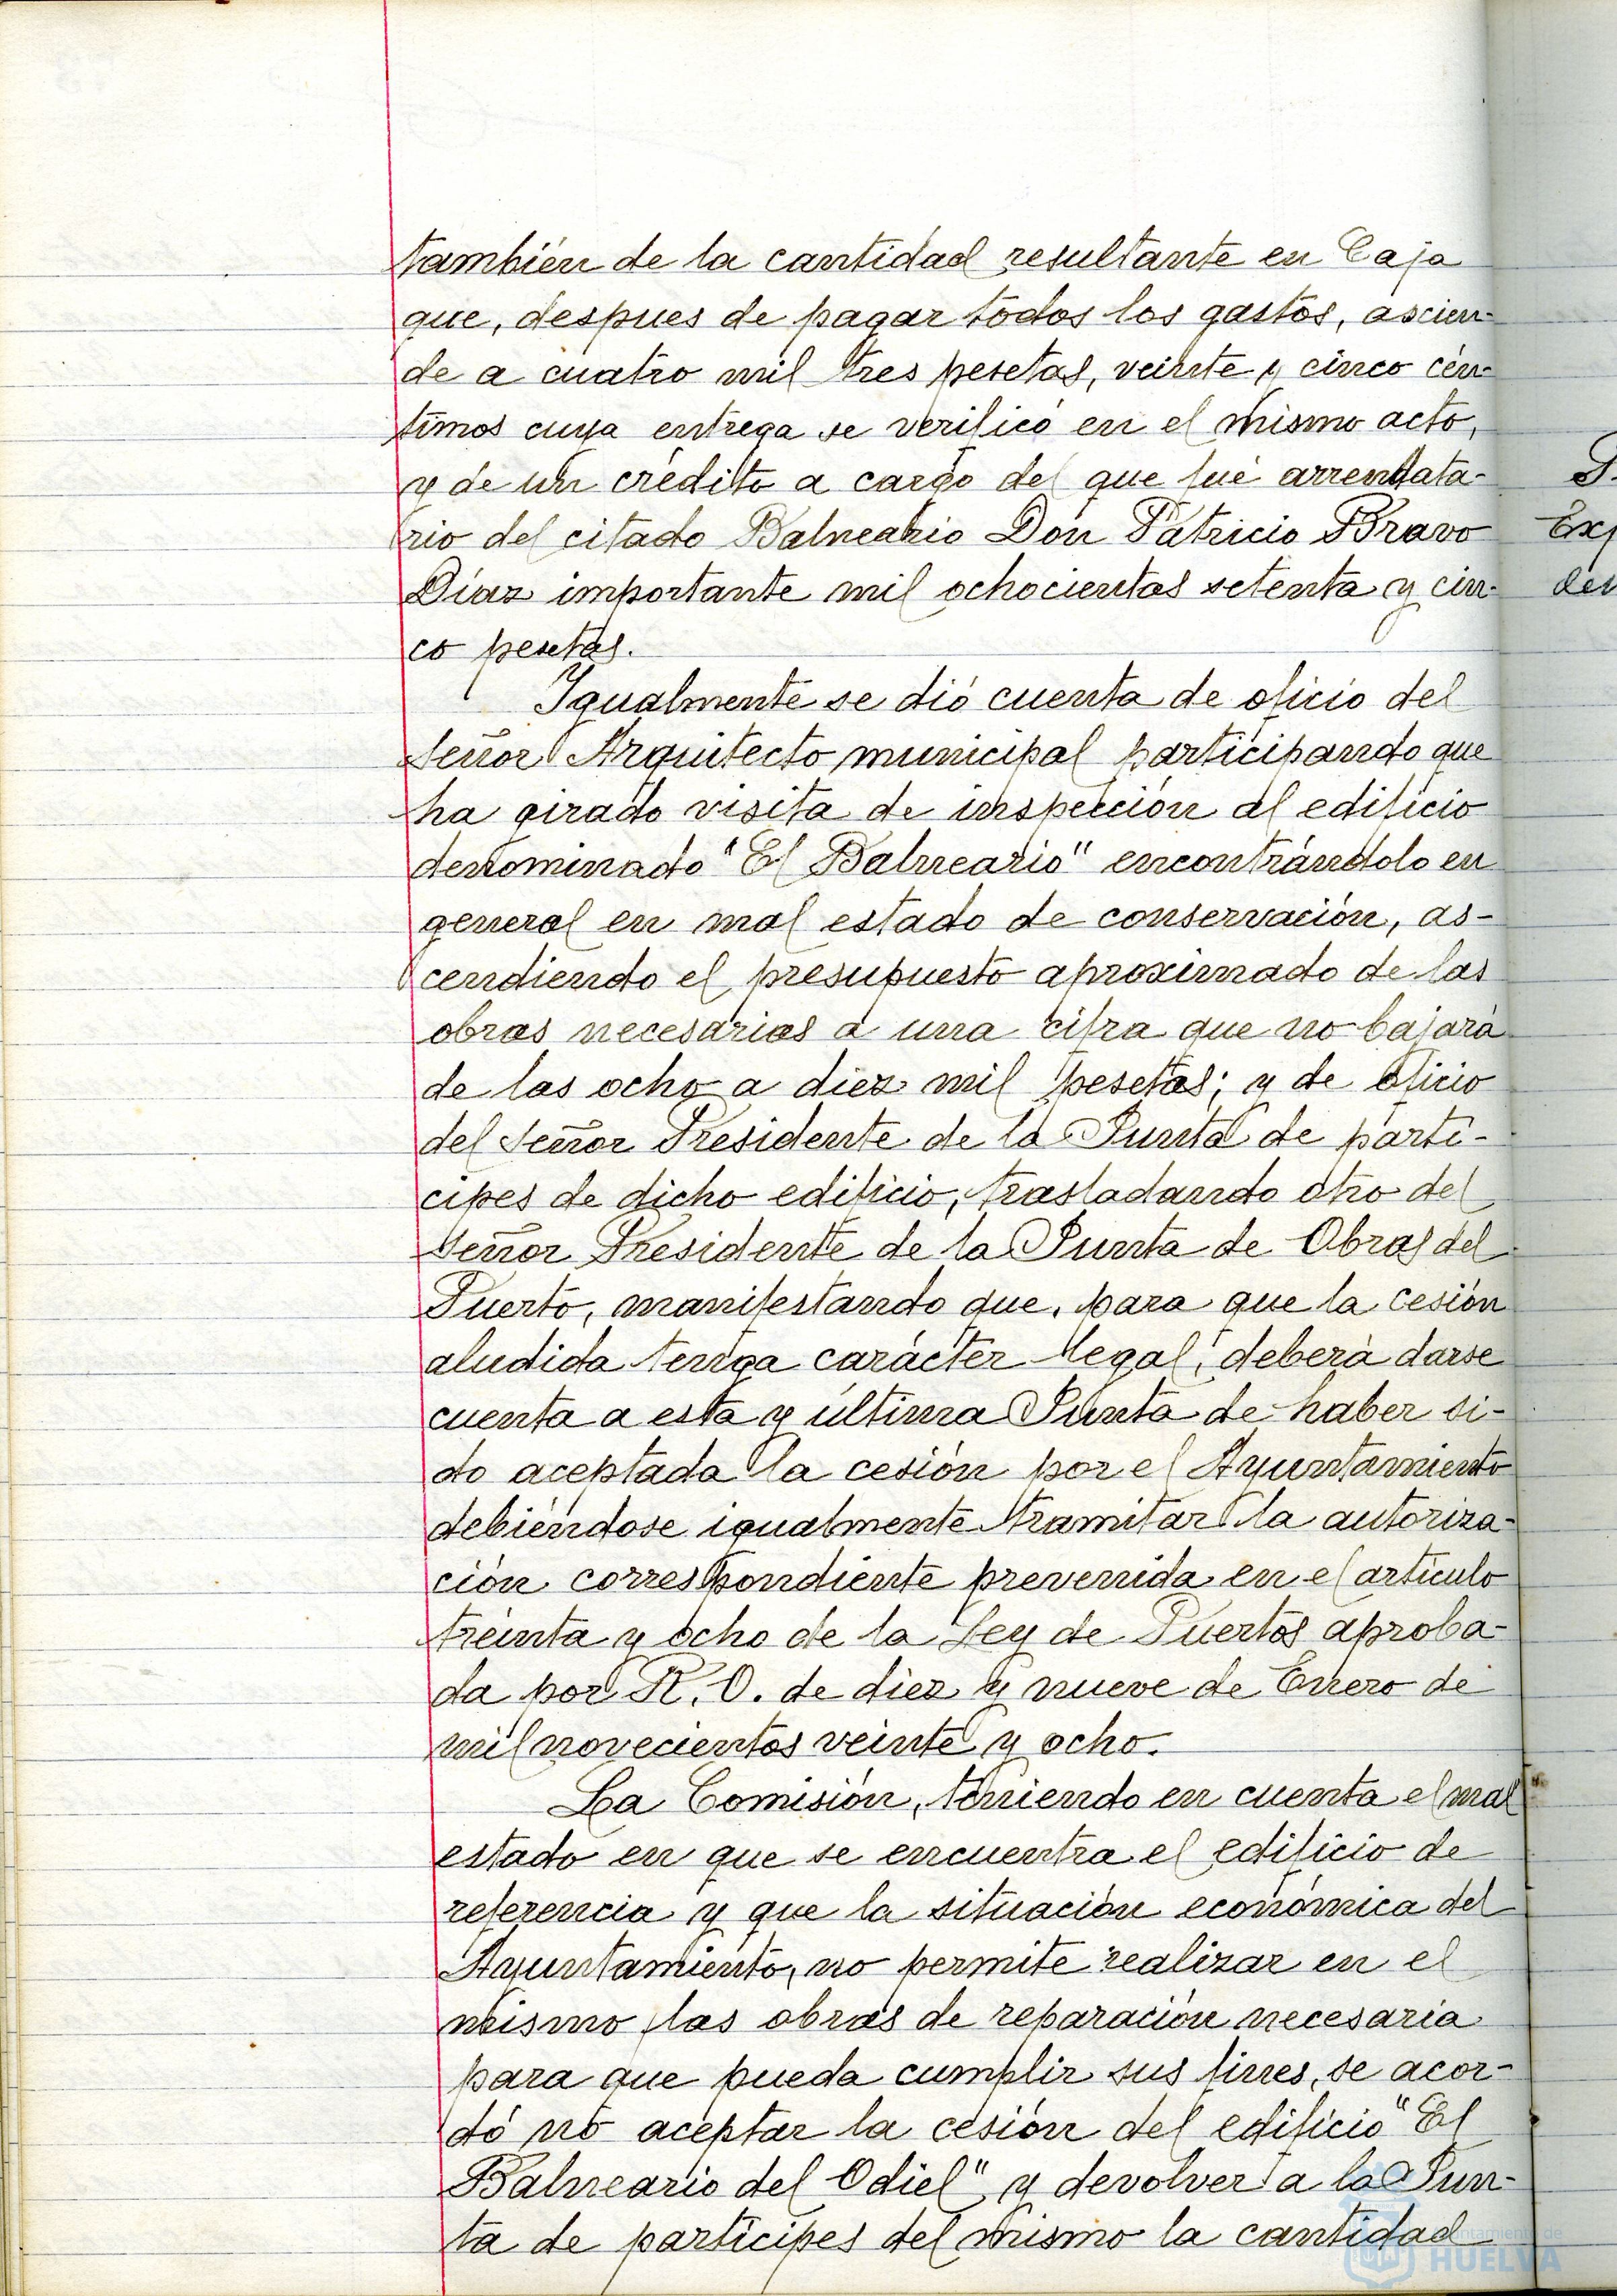 también de la cantidad resultante en Caja
que, despues de pagar todos los gastos, ascien-
de a cuatro mil tres pesetas, veinte y cinco cén-
timos cuya entrega se verificó en el mismo acto,
y de un crédito a cargo del que fué arrendata-
rio del citado Balneario Don Patricio Bravo
Díaz importante mil ochocientas setenta y cin-
co pesetas.
Igualmente se dió cuenta de oficio del
Señor Arquitecto municipal participando que
ha girado visita de inspección al edificio
denominado "El Balneario" encontrándolo en
general en mal estado de conservación, as-
cendiendo el presupuesto aproximado de las
obras necesarias a una cifra que no bajará
de las ocho a diez mil pesetas; y de oficio
del Señor Presidente de la Junta de partí-
cipes de dicho edificio, trasladando otro del
Señor Presidente de la Junta de Obras del
Puerto, manifestando que, para que la cesión
aludida tenga carácter legal, deberá darse
cuenta a esta y última Junta de haber si-
do aceptada la cesión por el Ayuntamiento
debiéndose igualmente tramitar la autoriza-
ción correspondiente prevenida en el artículo
treinta y ocho de la Ley de Puertos aproba-
da por R. O. de diez y nueve de Enero de
mil novecientos veinte y ocho.
La Comisión, teniendo en cuenta el mal
estado en que se encuentra el edificio de
referencia y que la situación económica del
Ayuntamiento, no permite realizar en el
mismo las obras de reparación necesaria
para que pueda cumplir sus fines, se acor-
dó no aceptar la cesión del edificio "El
Balneario del Odiel" y devolver a la Jun-
ta de partícipes del mismo la cantidad
Ayuntamiento de
HUELVA